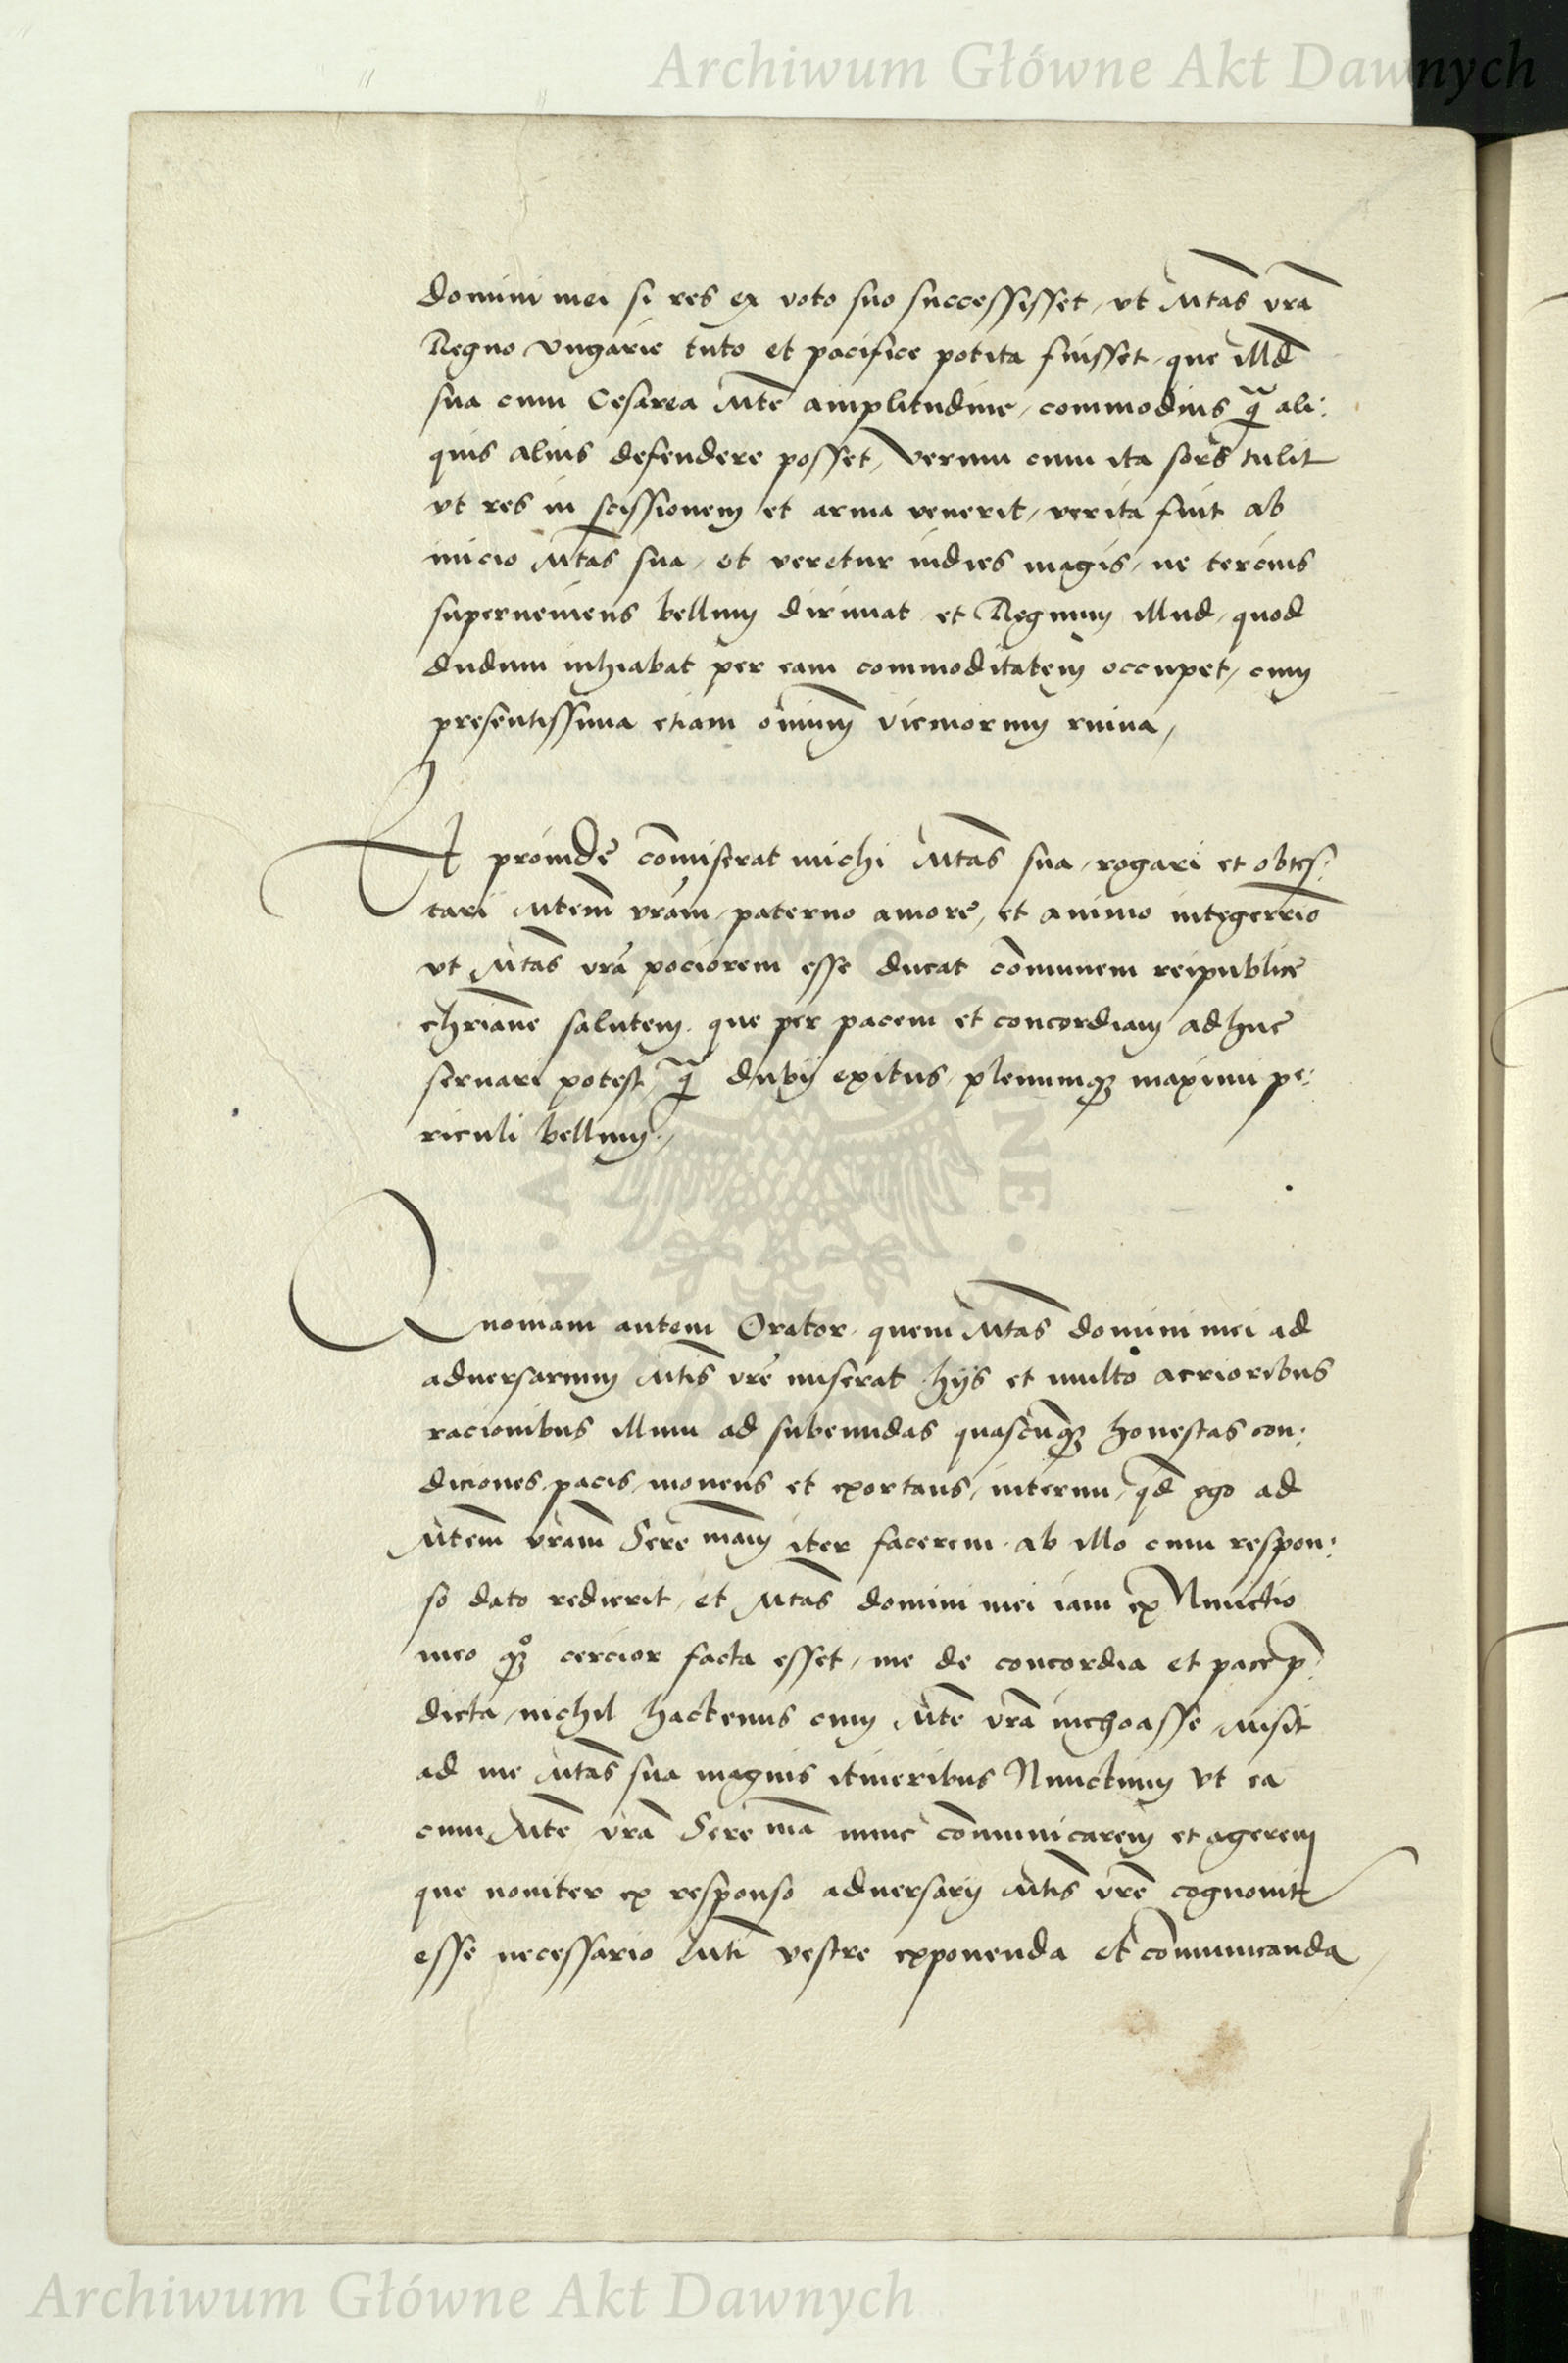 Archiwum Główne Akt Dawnych
domini mei si res ex voto suo successisset, ut Mtas vra
Regno Vngarie tuto et pacifice potita fuisset, que illud
sua cum Cesarea Mte amplitudine, commodius q̃ ali:
quis alius defendere posset, Verum cum ita sors tulit
vt res in scissionem et arma venerit, verita fuit ab
inicio Mtas sua, et veretur indies magis, ne tercius
superveniens bellum dirimat et Regnum illud, quod
dudum inhiabat per eam commoditatem occupet, cum
presentissima etiam omnium vicinorum ruina,
Et proinde comiserat michi Mtas sua, rogari et obtes:
tari Mtem vram, paterno amore, et animo integerrio
vt Mtas vra pociorem esse ducat comunem reipublice
christiane salutem, que per pacem et concordiam adhuc
servari potest, q̃ dubij exitus, plenumq; maximi pe:
riculi bellum,
Quoniam autem Orator, quem Mtas domini mei ad
adversarium Mtis vre miserat, hijs et multo acrioribus
racionibus illum ad subeundas quascunq; honestas con:
diciones pacis, monens et exortans, interim, qd ego ad
Mtem vram Sere mam iter facerem, ab illo cum respon:
so dato redierit, et Mtas domini mei iam ex Nunctio
meo quoq; cercior facta esset, me de concordia et pace p̃:
dicta, nichil hactenus cum Mte vra inchoasse, Misit
ad me Mtas sua magnis itineribus Nunctium vt ea
cum Mte vra Sere ma nunc comunicarem et agerem
que noviter ex responso adversarij Mtis vre cognovit
esse necessario Mti vestre exponenda et comunicanda
Archiwum Główne Akt Dawnych